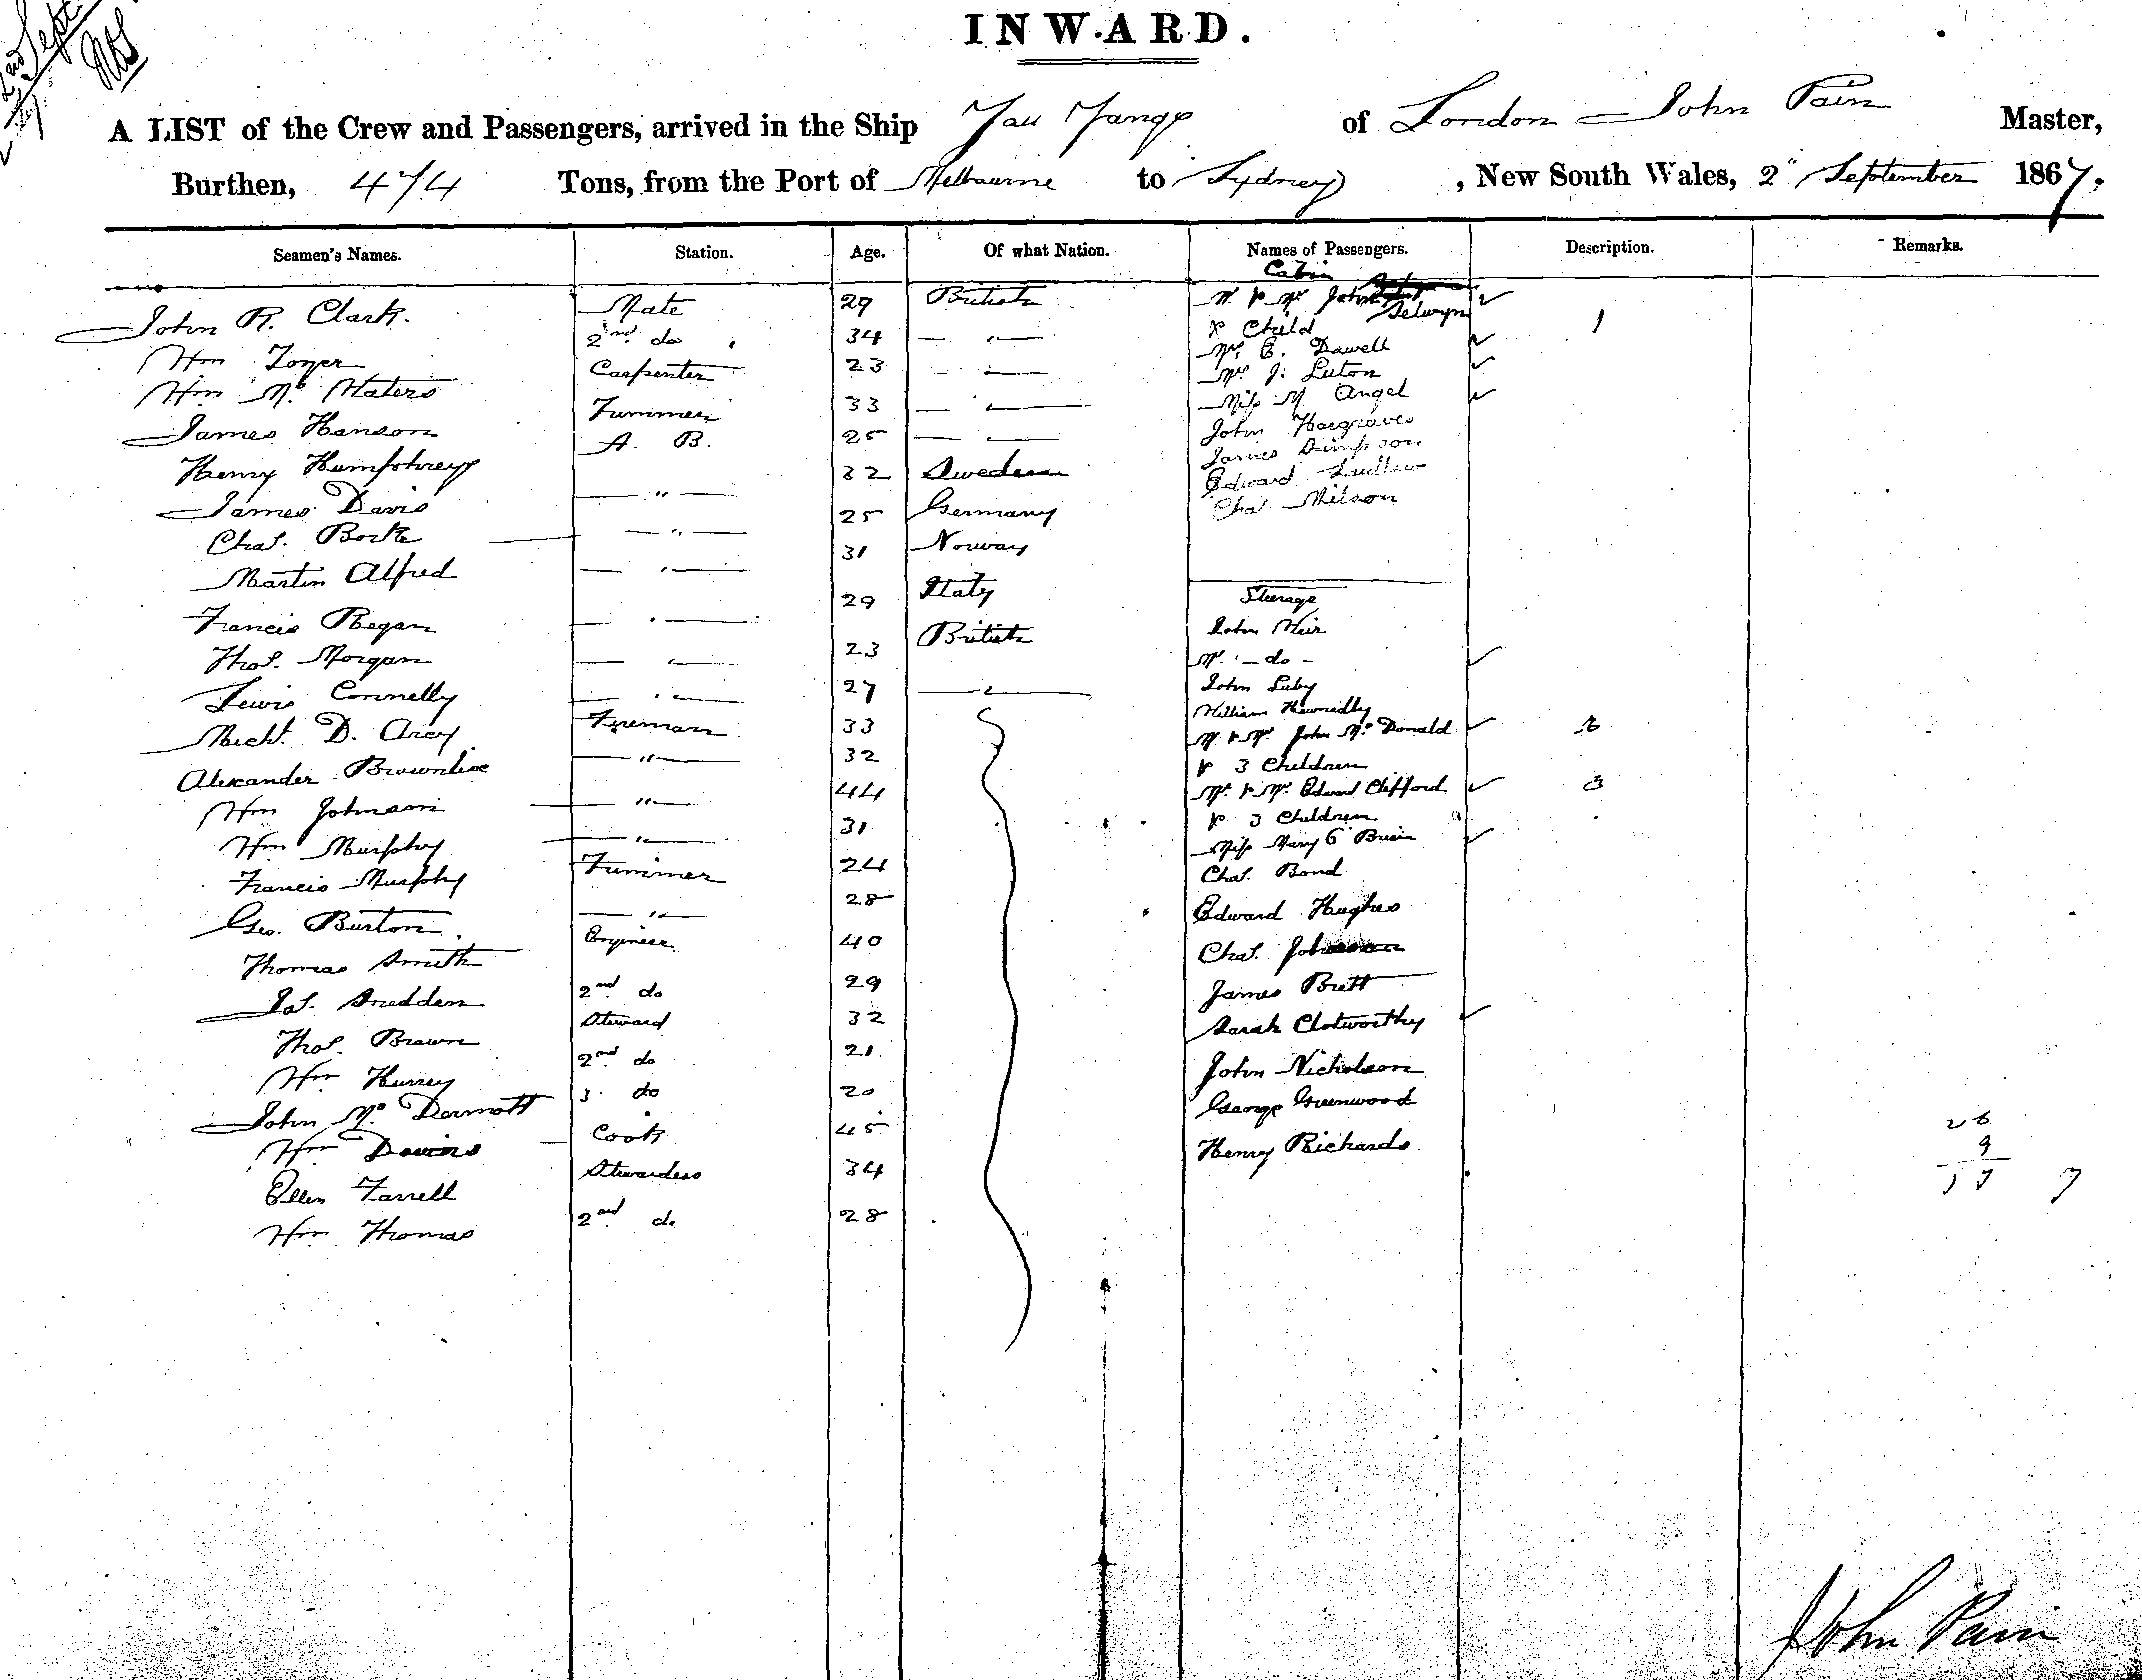 2nd Sept
INWARD.
A LIST of the Crew and Passengers, arrived in the Ship You Yangs of London John Pain Master,
Burthen, 474 Tons, from the Port of Melbourne to Sydney, New South Wales, 2" September 1867.
Seamen's Names. Station. Age. Of what Nation. Names of Passengers. Description. Remarks.
Cabin
John R. Clark. Mate 29 British Mr & Mrs John Selwyn
& Child 1
Wm Tozer 2nd do 34 — " — Mrs E. Dawell
Wm Mc Waters Carpenter 23 — " — Mrs J. Luton
James Hanson Trimmer 33 — " — Miss M Angel
Henry Humphreys A. B. 25 — " — John Hargraves
James Simpson
James Davis — " — 32 Sweden Edward Ludlow
Chas. Bock — " — 25 Germany Chas Wilson
Martin Alfred — " — 31 Norway
Steerage
Francis Regan — " — 29 Italy John Weir
Thos. Morgan — " — 23 British Mrs — do —
Lewis Connelly — " — 27 — " — John Luby
William
Micht. D. Arcy Fireman 33 Mr & Mrs John Mc Donald 2
Alexander Brownlie — " — 32 & 3 Children
Wm Johnson — " — 44 Mr & Mrs Edward Clifford 3
& 3 Children
Wm Murphy — " — 31 Miss Mary O'Brien
Francis Murphy Trimmer 24 Chas. Bond
Geo. Burton — " — 28 Edward Hughes
Thomas Smith Engineer 40 Chas. Johnson
Jas. Snedden 2nd do 29 James Brett
Thos. Brown Steward 32 Sarah Clotworthy
Wm Hurrey 2nd do 21 John Nicholson
John Mc Dermott 3 do 20 George Greenwood
Wm Davins Cook 45 Henry Richards
26
9
Ellen Farrell Stewardess 34 17 7
Wm Thomas 2nd do 28
John Pain